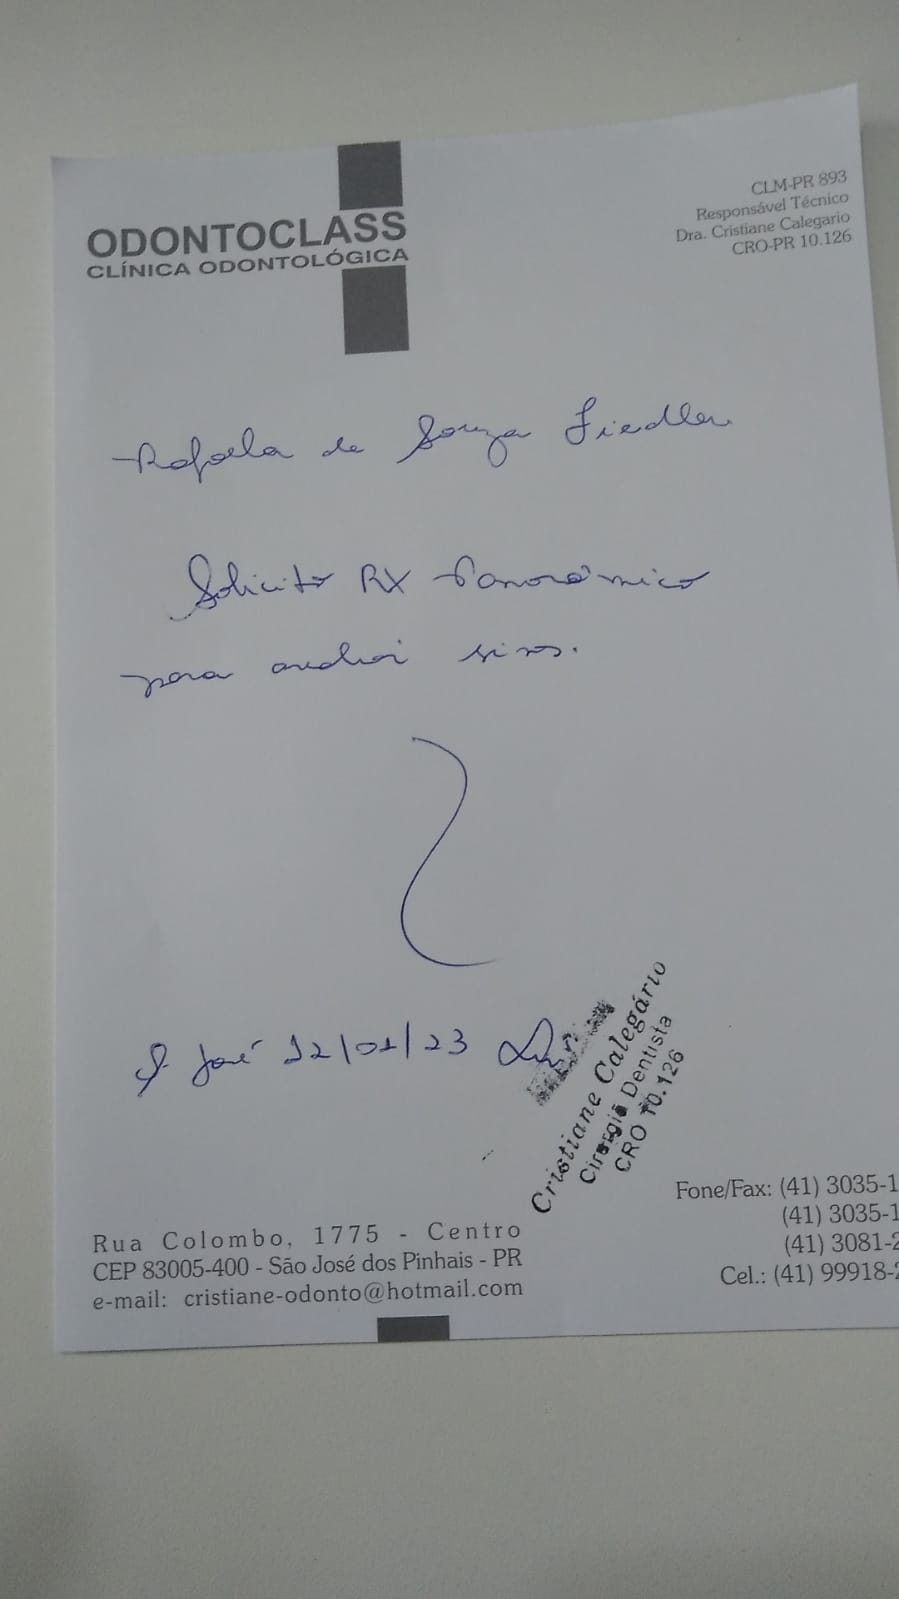 ODONTOCLASS
CLÍNICA ODONTOLÓGICA
CLM-PR 893
Responsável Técnico
Dra. Cristiane Calegario
CRO-PR 10.126
Rafaela de Souza Fiedler
Solicito RX Panorâmico
para avaliar sisos.
S. José 12/01/23
Cristiane Calegário
Cirurgiã Dentista
CRO 10.126
Rua Colombo, 1775 - Centro
CEP 83005-400 - São José dos Pinhais - PR
e-mail: cristiane-odonto@hotmail.com
Fone/Fax: (41) 3035-1
(41) 3035-1
(41) 3081-2
Cel.: (41) 99918-2